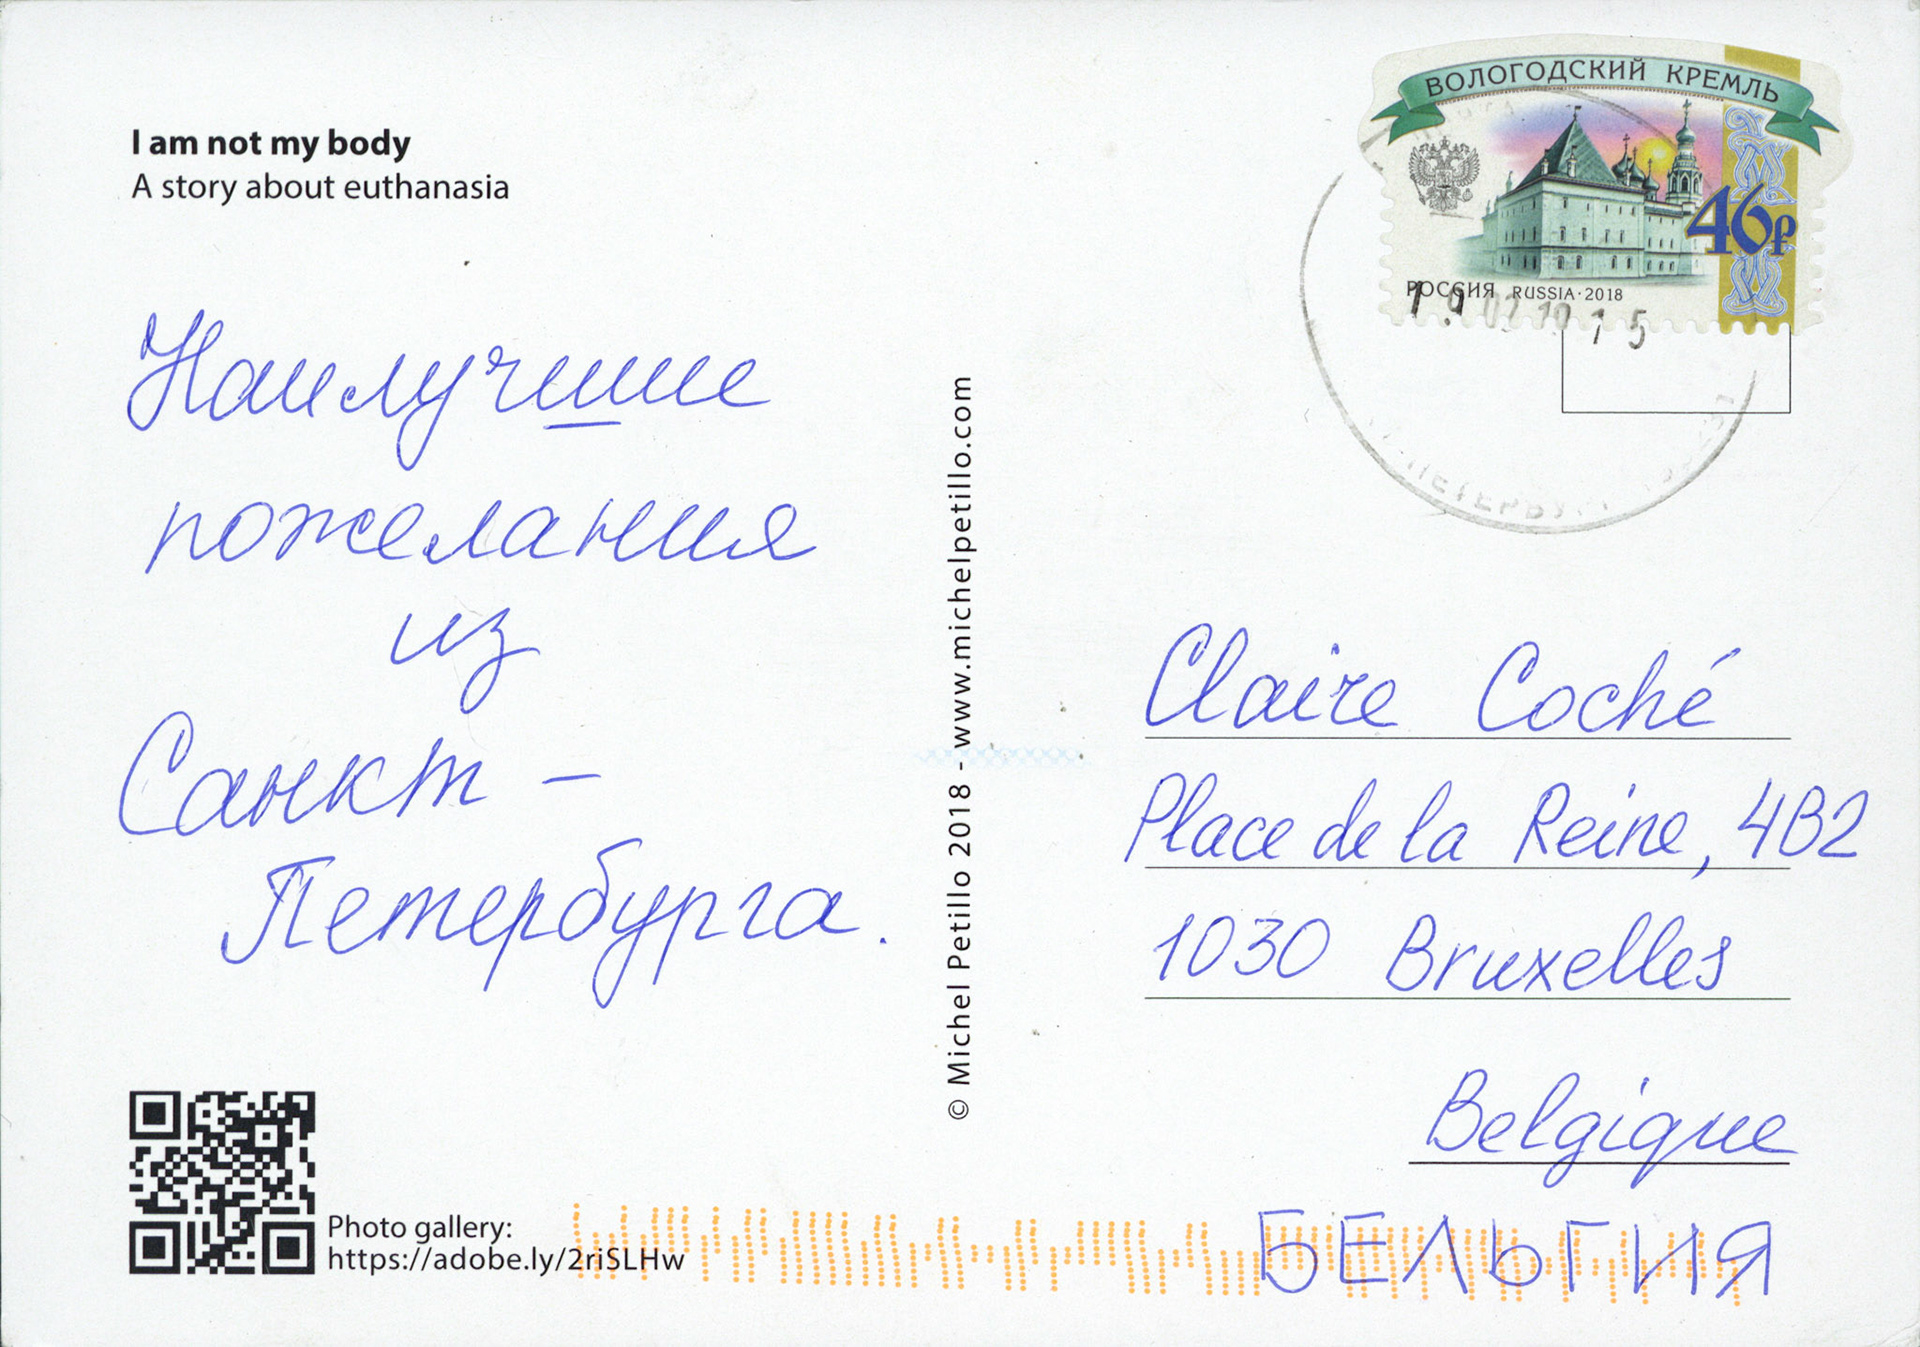 I am not my body
A story about euthanasia
Наилучшие
пожелания
из
Санкт -
Петербурга.
Photo gallery:
https://adobe.ly/2riSLHw
© Michel Petillo 2018 - www.michelpetillo.com
ВОЛОГОДСКИЙ КРЕМЛЬ
46₽
РОССИЯ RUSSIA·2018
Claire Coché
Place de la Reine, 4B2
1030 Bruxelles
Belgique
БЕЛЬГИЯ